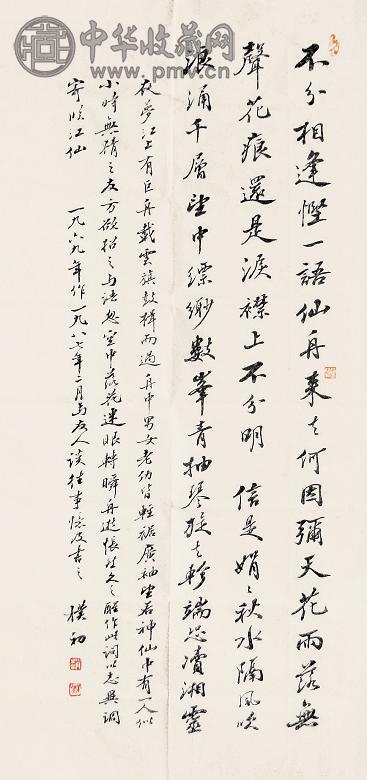 中华收藏网
www.pmv.cn
不分相逢慳一語仙舟來去何因彌天花雨落無
聲花痕還是淚襟上不分明 信是娟娟秋水隔風吹
浪涌千層望中縹緲數峯青抽琴旋去軫端恐瀆湘靈
夜夢江上有巨舟載雲旗鼓楫而過舟中男女老幼皆輕裾廣袖望若神仙中有一人似
小時無猜之友方欲招之與語忽空中落花迷眼轉瞬舟逝悵然久之醒作此詞以志異調
寄臨江仙 一九六九年作一九八七年二月與友人談往事憶及書之 樸初